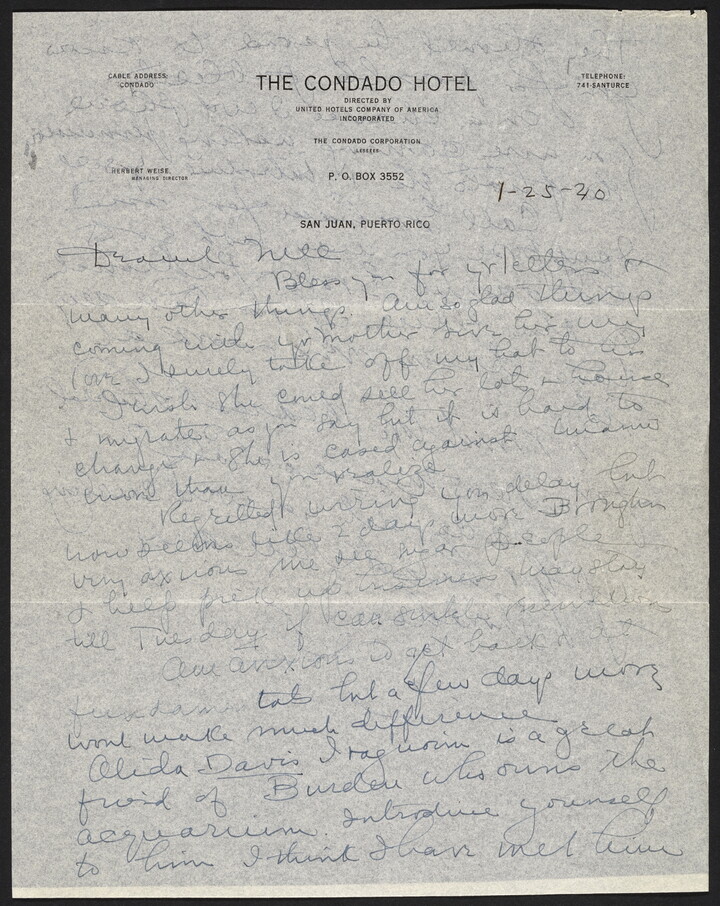 CABLE ADDRESS:
CONDADO
THE CONDADO HOTEL
DIRECTED BY
UNITED HOTELS COMPANY OF AMERICA
INCORPORATED
TELEPHONE:
741-SANTURCE
THE CONDADO CORPORATION
LESSEES
HERBERT WEISE
MANAGING DIRECTOR
P. O. BOX 3552
1-25-40
SAN JUAN, PUERTO RICO
Dearest Nell
Bless you for yr letters &
many other things. Am so glad things
coming with yr mother Give her my
love I surely take off my hat to
I wish she could sell her lots & house
& migrate as you say but it is hard to
change & she is cased against
more than you realize
Regretted wiring you delay but
now seems like 2 days more Brougham
very anxious me see sugar people
& help pick up business
till Tuesday if can
Am anxious to get back & at
fundamentals but a few days more
wont make much difference
Alida Davis is a great
friend of Burden who owns the
acquarium. Introduce yourself
to him I think I have met him